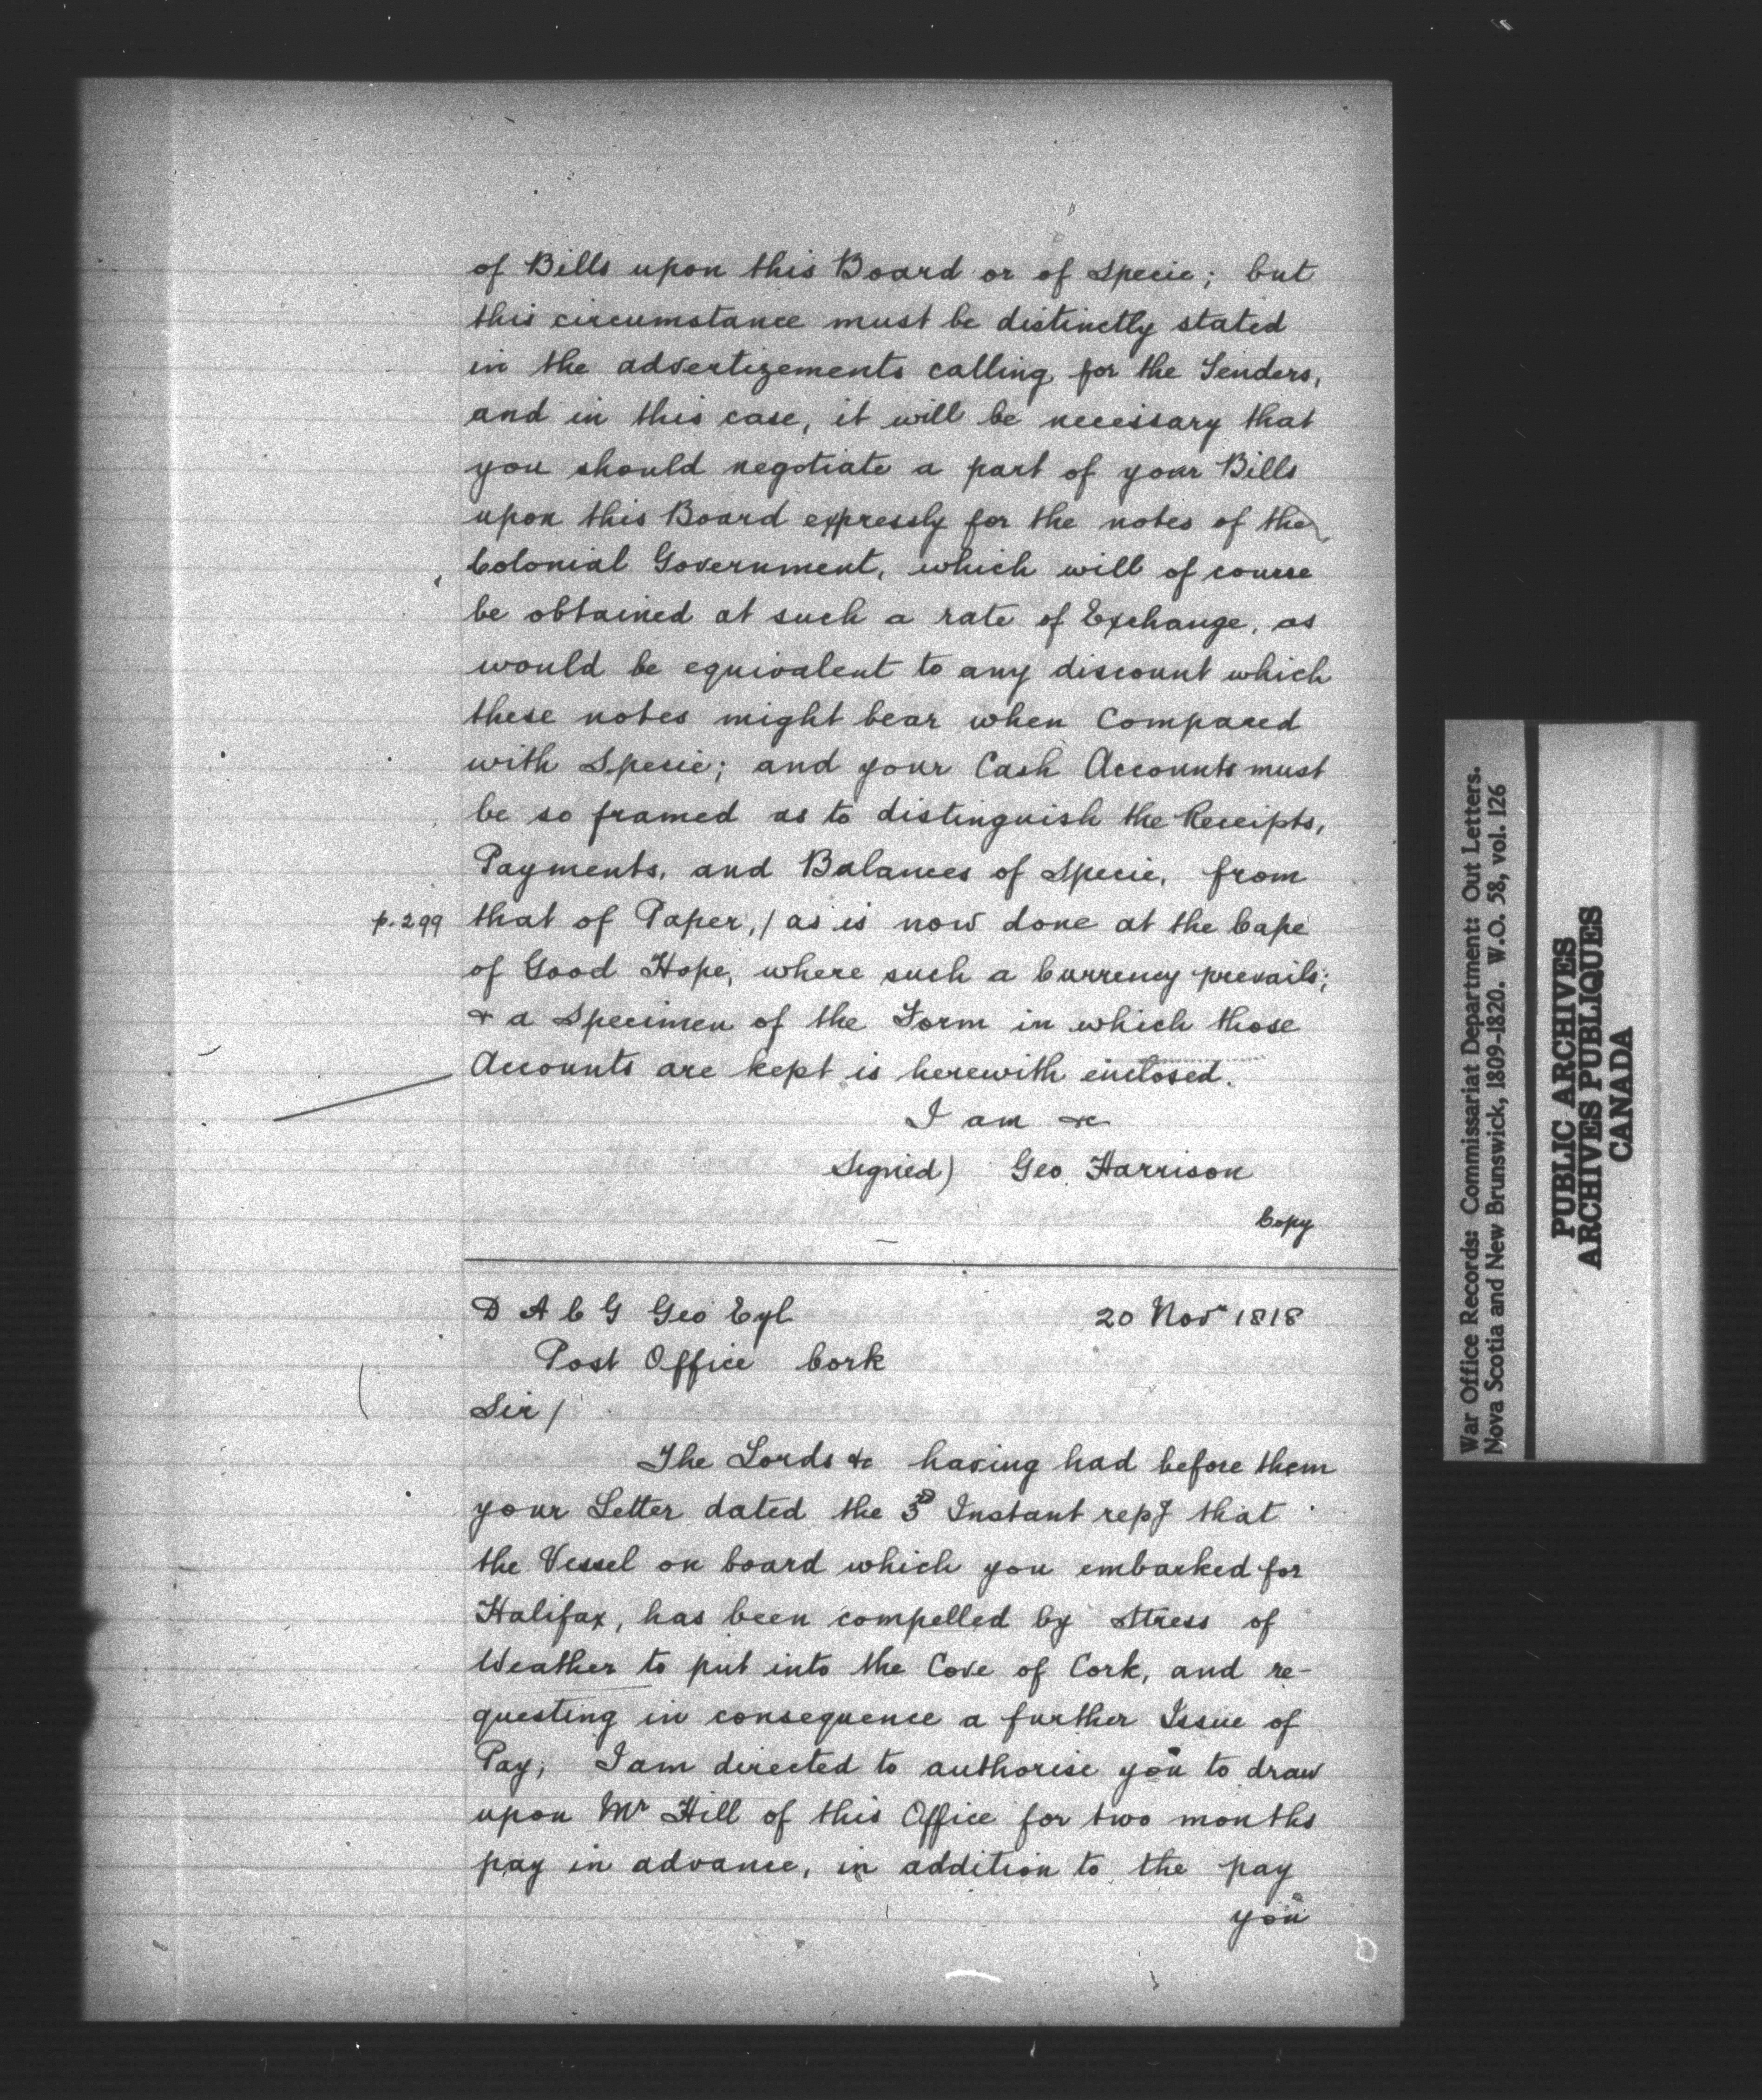 of Bills upon this Board or of Specie; but
this circumstance must be distinctly stated
in the advertizements calling for the Tenders,
and in this case, it will be necessary that
you should negotiate a part of your Bills
upon this Board expressly for the notes of the
Colonial Government, which will of course
be obtained at such a rate of Exchange, as
would be equivalent to any discount which
these notes might bear when Compared
with Specie; and your Cash Accounts must
be so framed as to distinguish the Receipts,
Payments, and Balances of Specie, from
p. 299 that of Paper, / as is now done at the Cape
of Good Hope, where such a Currency prevails;
& a Specimen of the Form in which those
Accounts are kept is herewith enclosed.
I am &c
Signed) Geo. Harrison
Copy
D A C G Geo Eyl
20 Novr 1818
Post Office Cork
Sir /
The Lords &c having had before them
your Letter dated the 3D Instant repg that
the Vessel on board which you embarked for
Halifax, has been compelled by Stress of
Weather to put into the Cove of Cork, and re-
questing in consequence a further Issue of
Pay; I am directed to authorise you to draw
upon Mr Hill of this Office for two months
pay in advance, in addition to the pay
you
War Office Records: Commissariat Department: Out Letters.
Nova Scotia and New Brunswick, 1809-1820. W.O. 58, vol. 126
PUBLIC ARCHIVES
ARCHIVES PUBLIQUES
CANADA